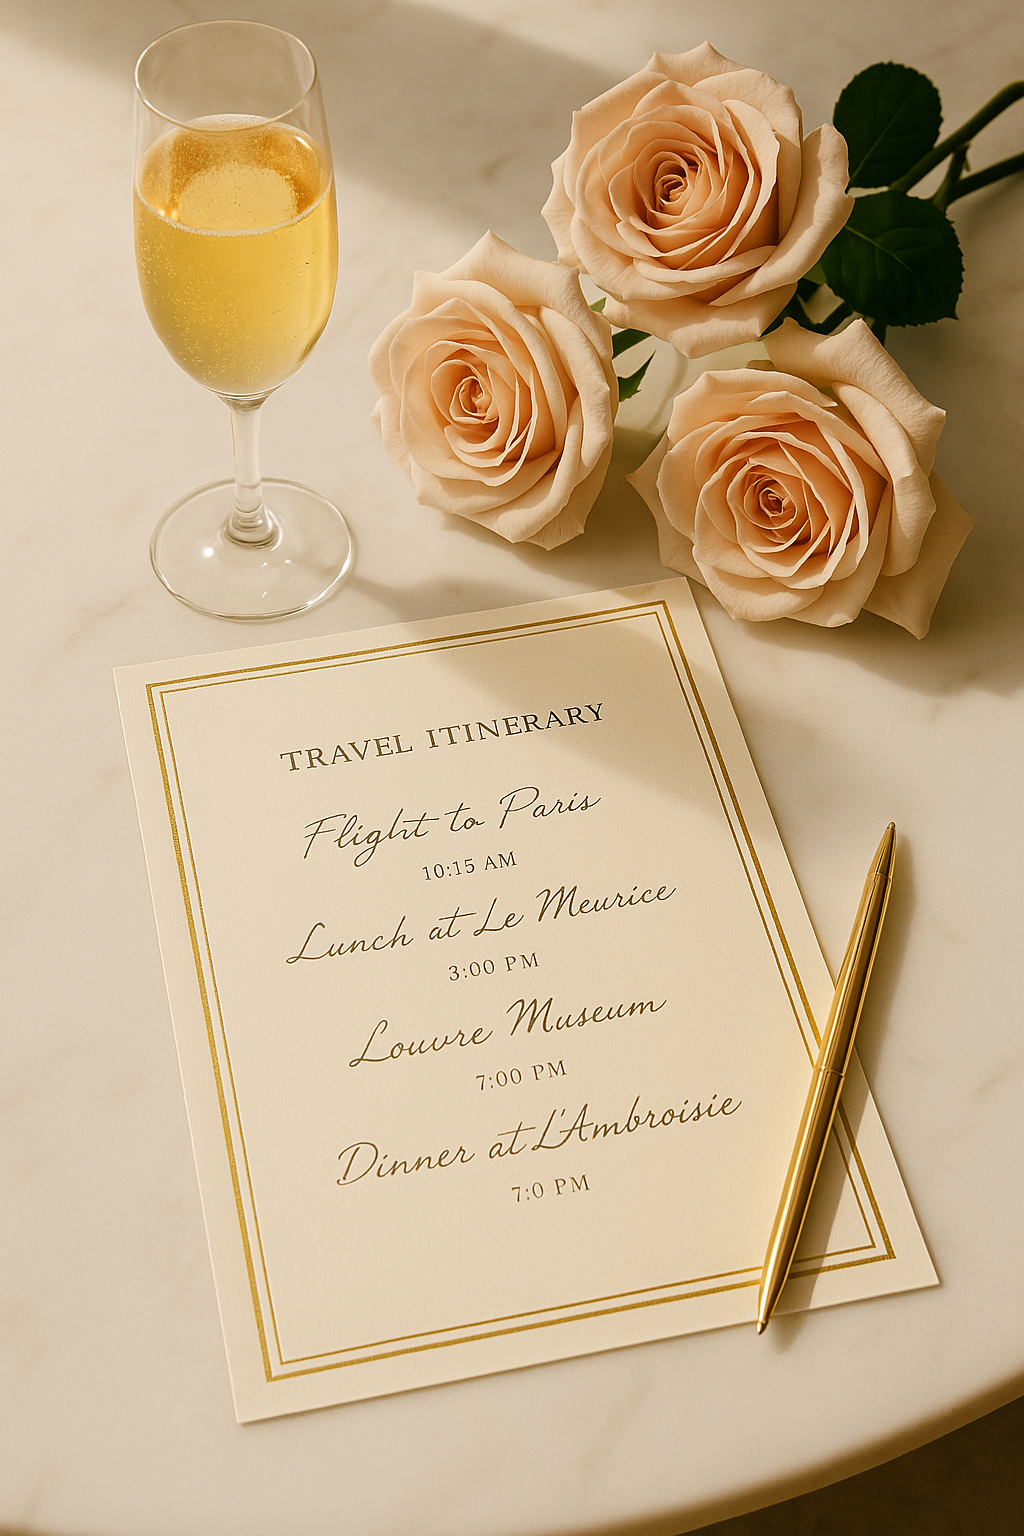 TRAVEL ITINERARY
Flight to Paris
10:15 AM
Lunch at Le Meurice
3:00 PM
Louvre Museum
7:00 PM
Dinner at L'Ambroisie
7:0 PM